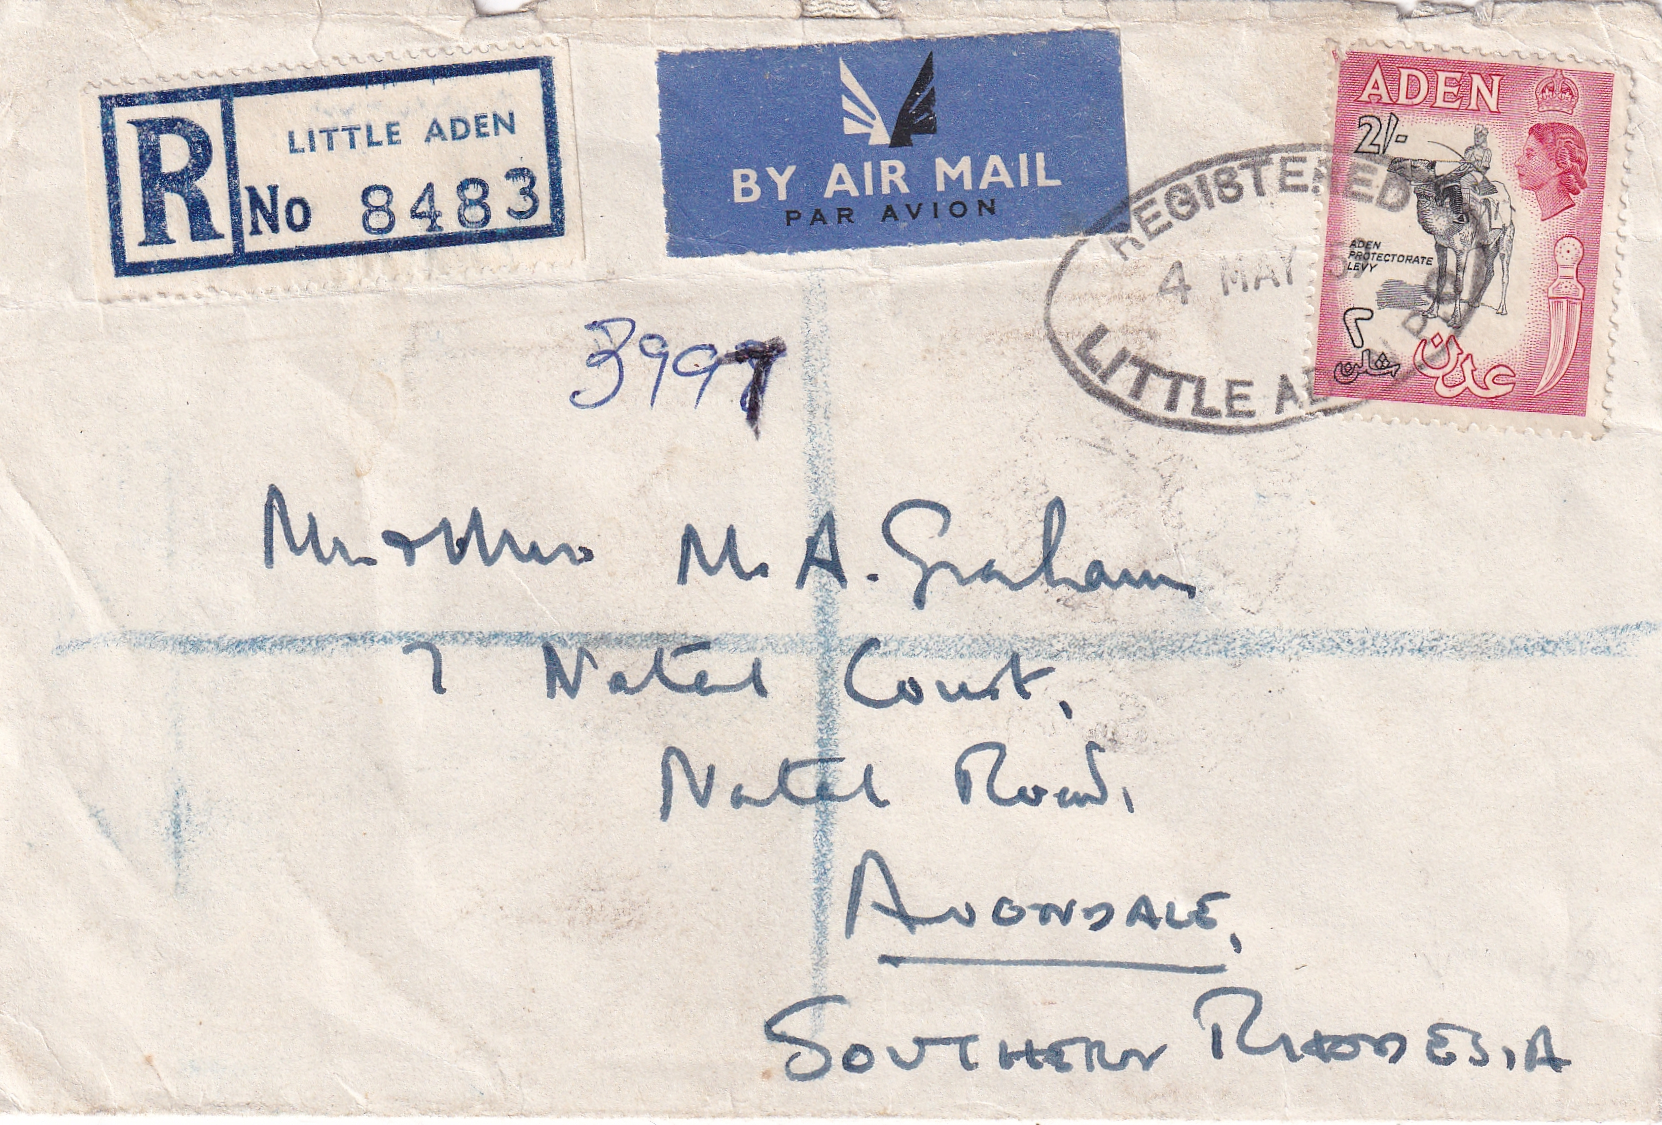 R
LITTLE ADEN
No 8483
BY AIR MAIL
PAR AVION
REGISTERED
4 MAY 5
LITTLE AD
ADEN
2/-
ADEN
PROTECTORATE
LEVY
٢
شلن
عدن
3997
Mr. & Mrs M. A. Graham
7 Natal Court,
Natal Road,
AVONDALE,
SOUTHERN RHODESIA